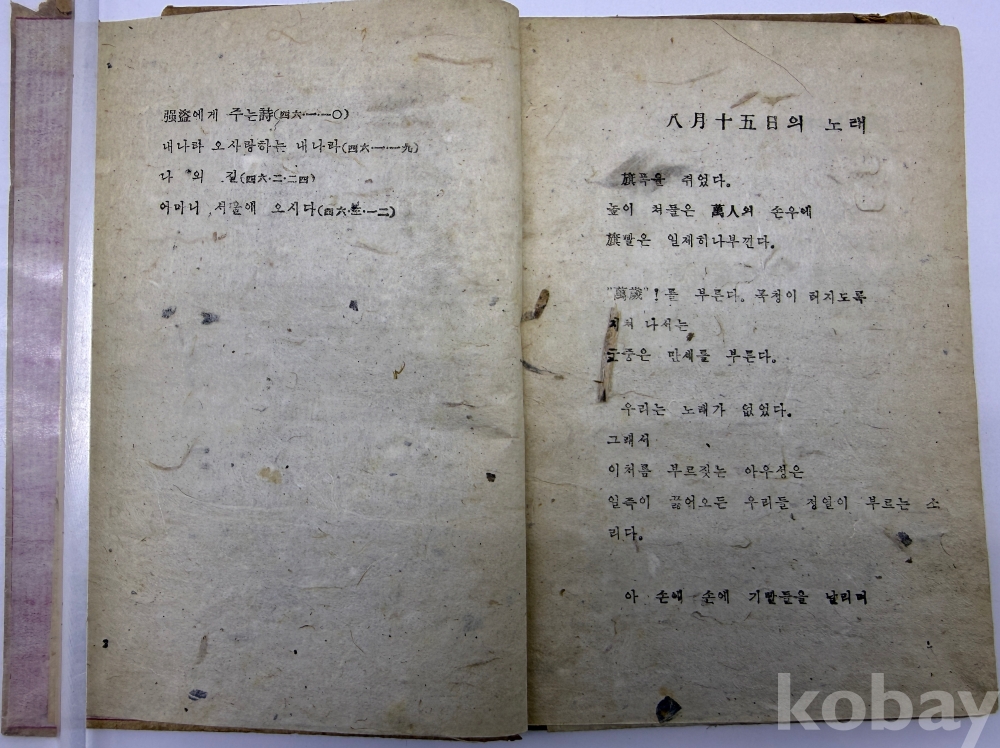 强盜에게 주는詩(四六·一·一〇)
내나라 오사랑하는 내나라(四六·一·一九)
나 의 길(四六·二·二四)
어머니 서울에 오시다(四六·三·一二)
3
八月十五日의 노래
旗폭을 쥐었다。
높이 처들은 萬人의 손우에
旗빨은 일제히나부낀다。
"萬歲"!를 부른다。 목청이 터지도록
지처 나서는
군중은 만세를 부른다。
우리는 노래가 없었다。
그래서
이처름 부르짓는 아우성은
일즉이 끓어오든 우리들 정열이 부르는 소
리다。
아 손에 손에 기빨들을 날리며
kobay